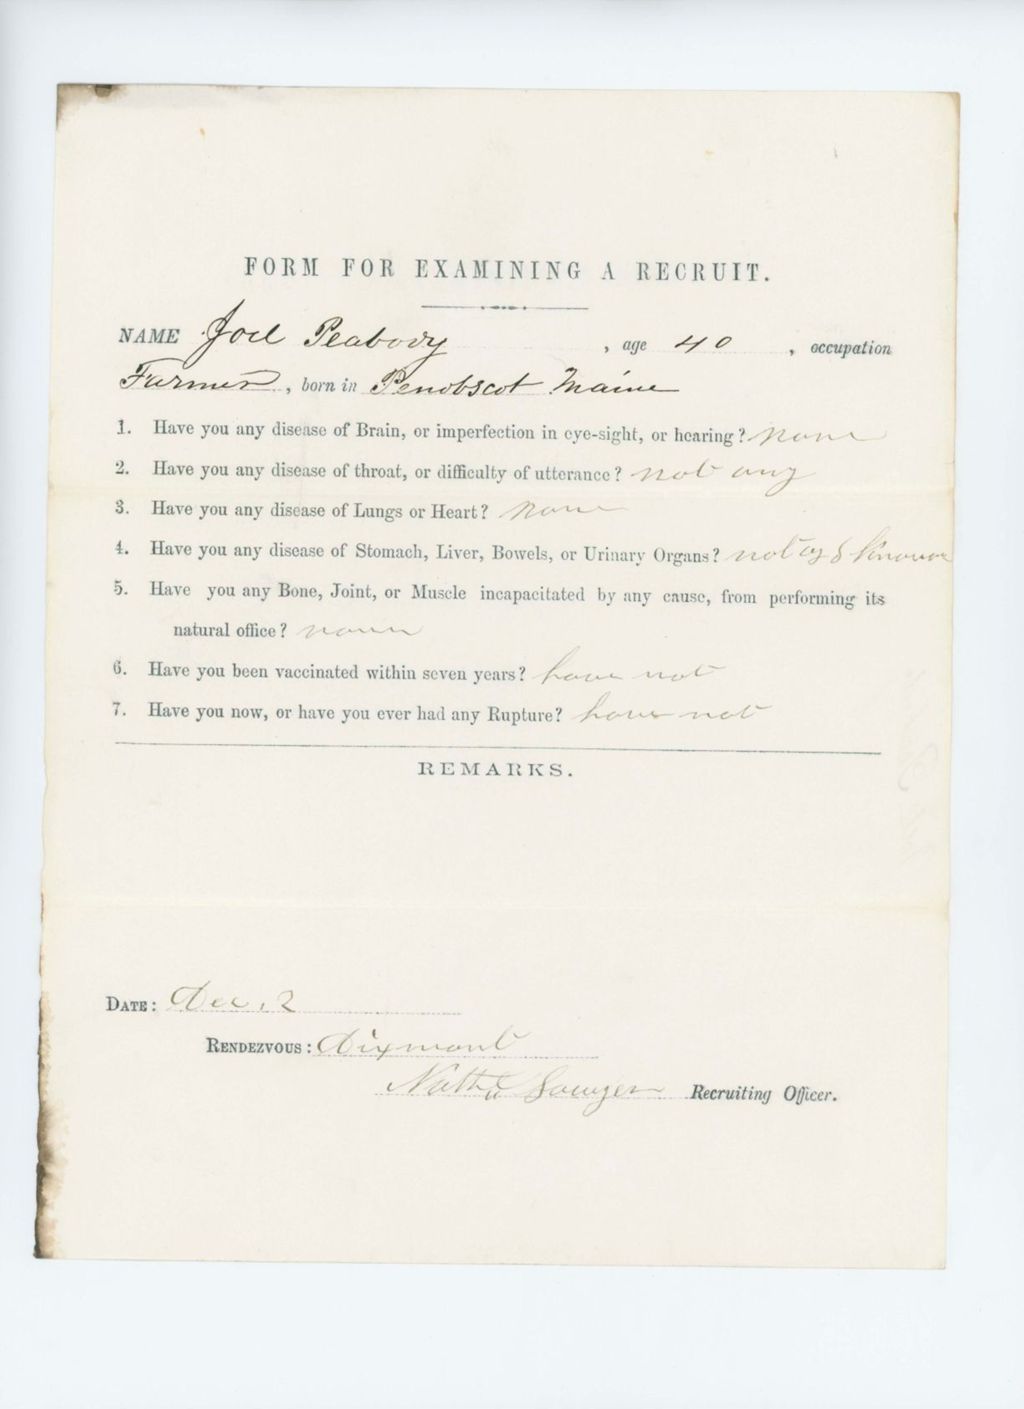 FORM FOR EXAMINING A RECRUIT.
NAME Joel Peabody, age 40, occupation
Farmer, born in Penobscot Maine
1. Have you any disease of Brain, or imperfection in eye-sight, or hearing? none
2. Have you any disease of throat, or difficulty of utterance? not any
3. Have you any disease of Lungs or Heart? none
4. Have you any disease of Stomach, Liver, Bowels, or Urinary Organs? not
5. Have you any Bone, Joint, or Muscle incapacitated by any cause, from performing its
natural office? none
6. Have you been vaccinated within seven years? have not
7. Have you now, or have you ever had any Rupture? have not
REMARKS.
DATE: Dec. 2
RENDEZVOUS: Dixmont
Sawyer Recruiting Officer.